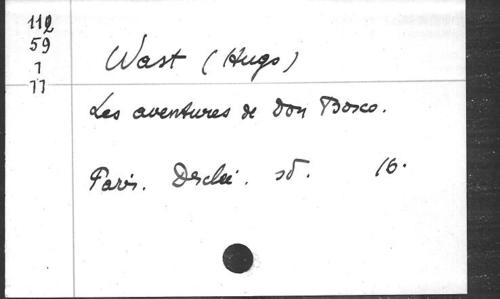 112
59
1
77
Wast (Hugo)
Les aventures de Don Bosco.
Paris. Desclée. sd. 16.